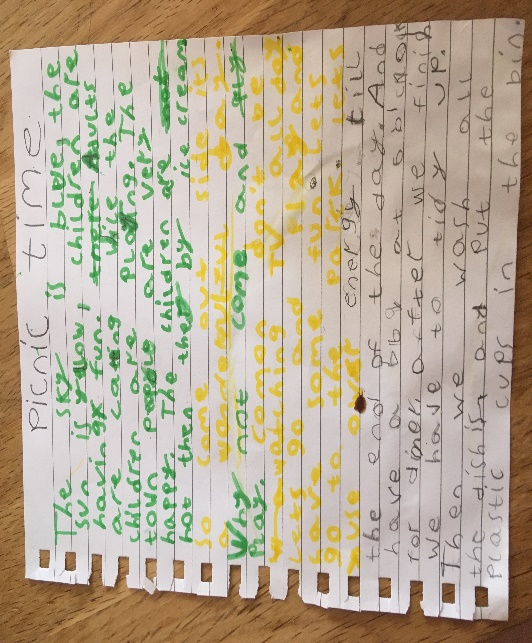 Picnic time
The sky is blue, the
sun is yellow, children are
having fun. Adults
are eating the
children are playing. The
town are very
happy. The children are
hot then they by ice cream
so come out side its
a
Why not come and
Play. Comon don't be
watching TV all day
Lets go and play and
have some fun. Lets
go to the park lets
use our energy till
the end of the day. And
have a biby at 6 o'clock
for diner after we finish
we have to tidy up.
Then we wash all
the dishis and put the
plastic cups in the bin.